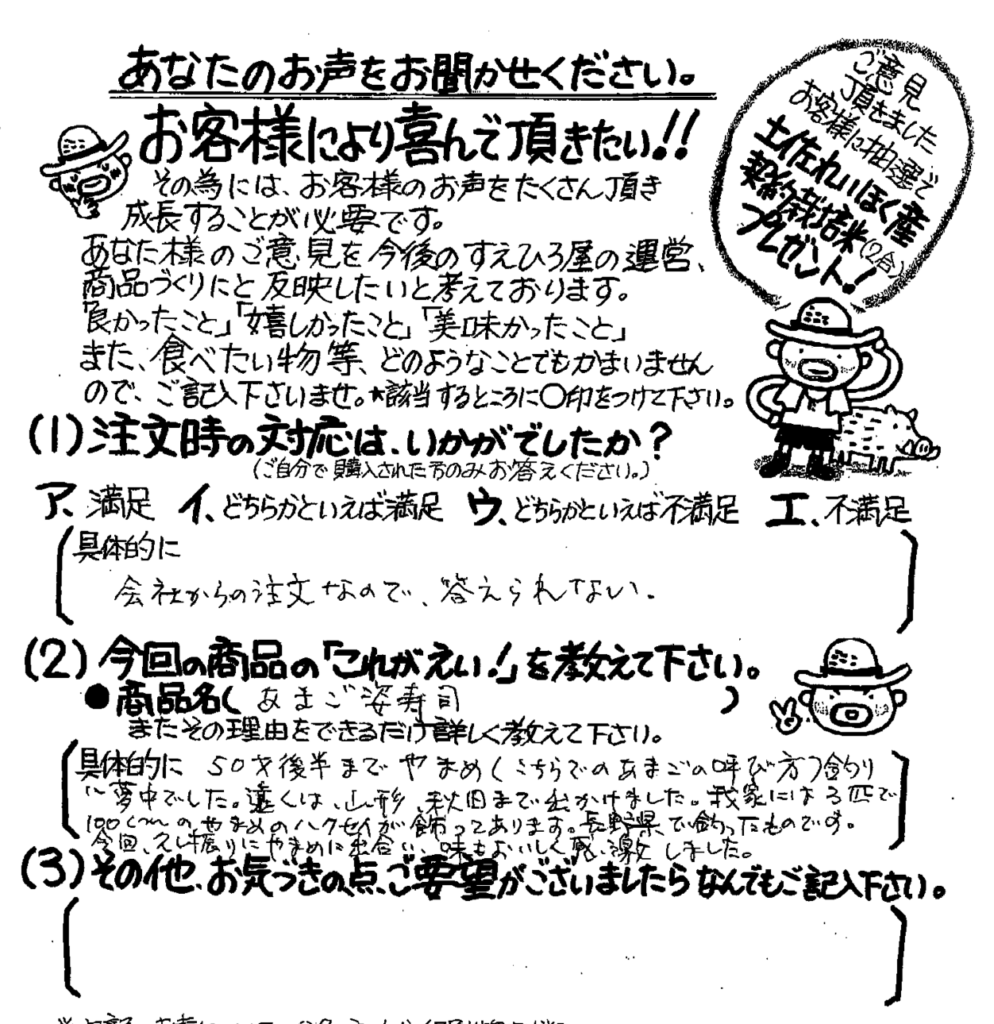 あなたのお声をお聞かせください。
お客様により喜んで頂きたい!!
その為には、お客様のお声をたくさん頂き
成長することが必要です。
あなた様のご意見を今後のすえひろ屋の運営、
商品づくりにと反映したいと考えております。
「良かったこと」「嬉しかったこと」「美味かったこと」
また、食べたい物等、どのようなことでもかまいません
ので、ご記入下さいませ。★該当するところに〇印をつけて下さい。
ご意見
頂きました
お客様に抽選で
土佐れいほく産
契約栽培米(2合)
プレゼント!
(1)注文時の対応は、いかがでしたか?
(ご自分で購入された方のみお答えください。)
ア、満足 イ、どちらかといえば満足 ウ、どちらかといえば不満足 エ、不満足
具体的に
会社からの注文なので、答えられない。
(2)今回の商品の「これがえい!」を教えて下さい。
●商品名( あまご姿寿司 )
またその理由をできるだけ詳しく教えて下さい。
具体的に 50才後半までやまめ(こちらでのあまごの呼び方)釣り
に夢中でした。遠くは、山形、秋田まで出かけました。我家には3匹で
100cmのやまめのハクセイが飾ってあります。長野県で釣ったものです。
今回、久し振りにやまめに出合い、味もおいしく感激しました。
(3)その他、お気づきの点、ご要望がございましたらなんでもご記入下さい。